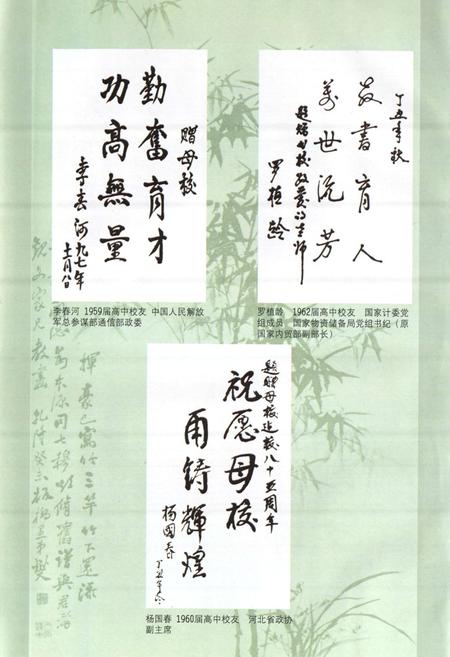 赠母校
勤奮育才
功高無量
李春河九七年
十一月八日
李春河 1959届高中校友 中国人民解放
军总参谋部通信部政委
丁丑年秋
教書育人
萬世流芳
题赠母校敬爱的老师
罗植龄
罗植龄 1962届高中校友 国家计委党
组成员 国家物资储备局党组书纪（原
国家内贸部副部长）
题赠母校建校八十五周年
祝愿母校
再铸輝煌
杨國春
丁丑年冬
杨国春 1960届高中校友 河北省政协
副主席